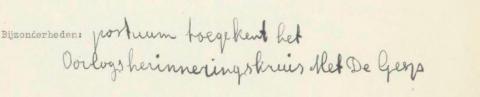 Bijzonderheden: postuum toegekent het
Oorlogsherinneringskruis Met De Gesp